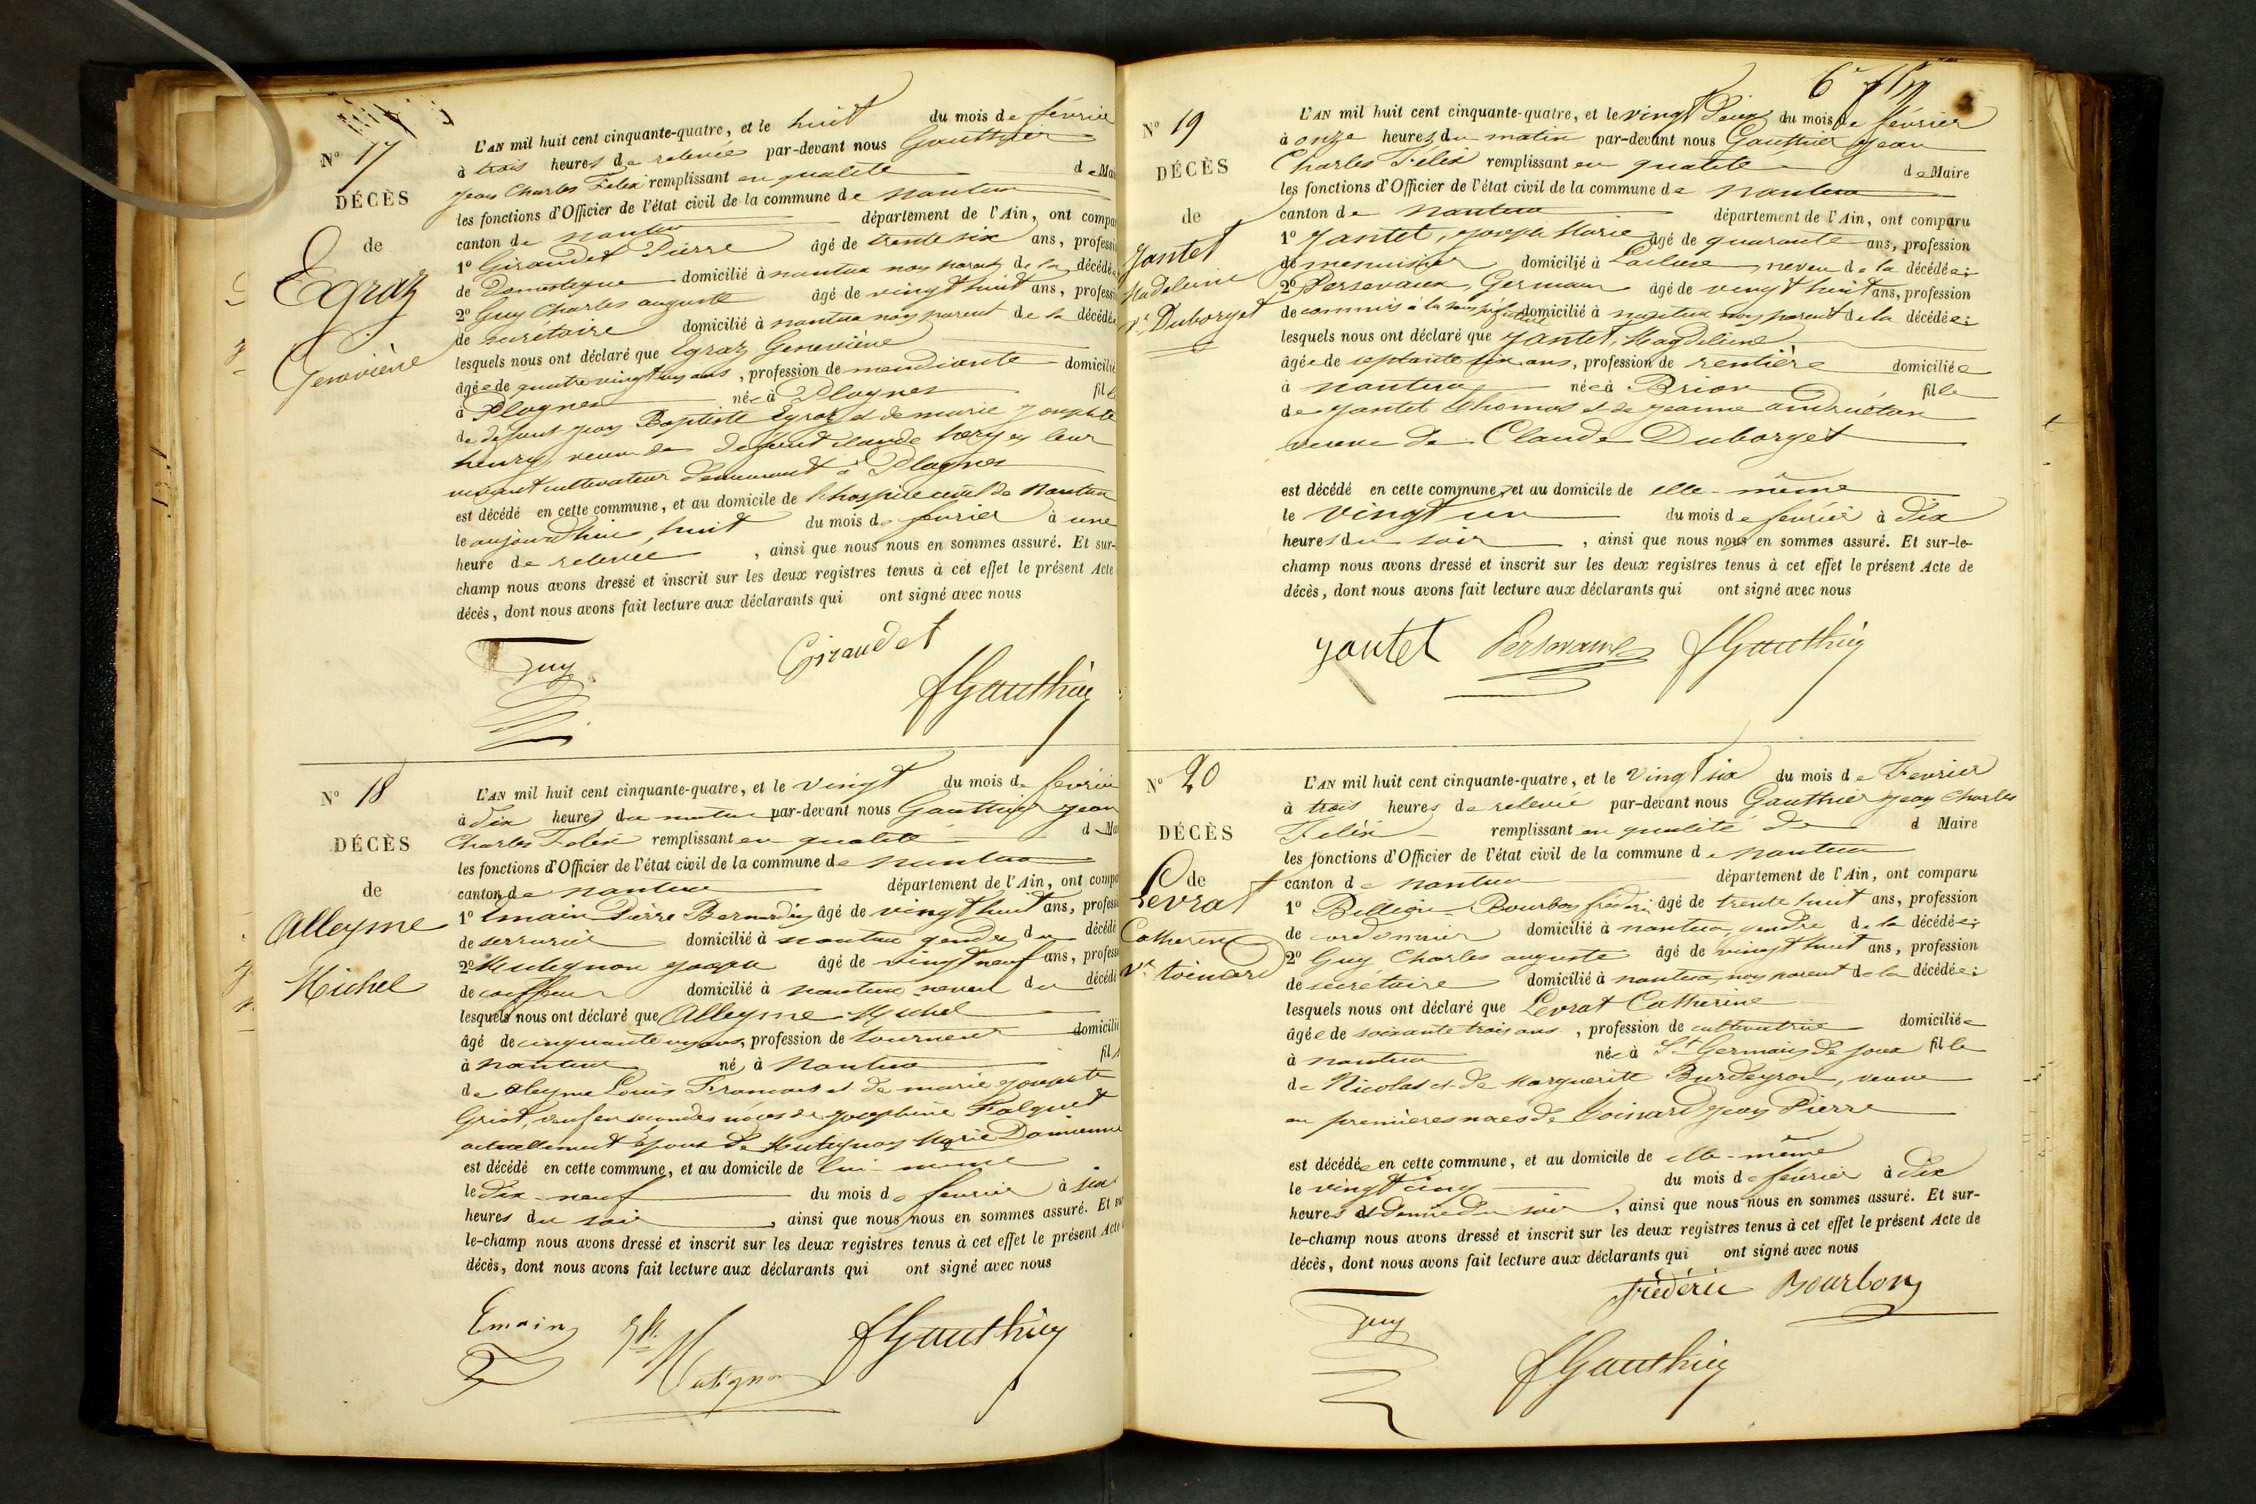 N° 17
DÉCÈS
de
Egraz
Geneviève
L'AN mil huit cent cinquante-quatre, et le huit du mois de février
à trois heures de relevée par-devant nous Gauthier
Jean Charles Felix remplissant en qualité de Mai
les fonctions d'Officier de l'état civil de la commune de Nantua
canton de Nantua département de l'Ain, ont compa
1° Giraudet Pierre âgé de trente six ans, professi
de Domestique domicilié à nantua non parent de la décédée
2° Guy Charles auguste âgé de vingt huit ans, professi
de secrétaire domicilié à nantua non parent de la décédée
lesquels nous ont déclaré que Egraz Geneviève
âgée de quatre vingt un ans, profession de mendiante domicilié
à Plagnes née à Plagnes fille
de défunt Jean Baptiste Egraz et de marie Josephte
henry veuve de defunt claude
vivant cultivateur demeurant à Plagnes
est décédé en cette commune, et au domicile de l'hospice civil de Nantua
le aujourd'hui huit du mois de fevrier à une
heure de relevée, ainsi que nous nous en sommes assuré. Et sur-
champ nous avons dressé et inscrit sur les deux registres tenus à cet effet le présent Acte
décès, dont nous avons fait lecture aux déclarants qui ont signé avec nous
Guy Giraudet
fGauthier
N° 18
DÉCÈS
de
Alleyme
Michel
L'AN mil huit cent cinquante-quatre, et le vingt du mois de février
à dix heures du matin par-devant nous Gauthier Jean
Charles Felix remplissant en qualité de Mai
les fonctions d'Officier de l'état civil de la commune de nantua
canton de nantua département de l'Ain, ont compa
1° Emain Pierre Bernardin âgé de vingt huit ans, professi
de serrurier domicilié à nantua gendre du décédé
2° Mutignon Joseph âgé de vingt neuf ans, professi
de coiffeur domicilié à nantua neveu du décédé
lesquels nous ont déclaré que Alleyme Michel
âgé de cinquante un ans, profession de tourneur domicilié
à nantua né à Nantua fils
de Aleyme Louis François et de marie Josephte
Griot, veuf en secondes nôces de Josephine Falquet
actuellement époux de Mutignon Marie Damienne
est décédé en cette commune, et au domicile de lui-meme
le dix-neuf du mois de fevrier à six
heures du soir, ainsi que nous nous en sommes assuré. Et sur
le-champ nous avons dressé et inscrit sur les deux registres tenus à cet effet le présent Acte
décès, dont nous avons fait lecture aux déclarants qui ont signé avec nous
Emain Jh Mutignon fGauthier
N° 19
DÉCÈS
de
Jantet
Madeleine
Ve Duborget
L'AN mil huit cent cinquante-quatre, et le vingt Deux du mois de février
à onze heures du matin par-devant nous Gauthier Jean
Charles Félix remplissant en qualité de Maire
les fonctions d'Officier de l'état civil de la commune de Nantua
canton de Nantua département de l'Ain, ont comparu
1° Jantet, Joseph Marie âgé de quarante ans, profession
de menuisier domicilié à Lacluse, neveu de la décédée;
2° Persevaux, Germain âgé de vingt huit ans, profession
de commis à la sous préfecture domicilié à nantua non parent de la décédée;
lesquels nous ont déclaré que Jantet, Magdeleine
âgée de septante six ans, profession de rentière domiciliée
à nantua née à Brion fille
de Jantet thomas et de Jeanne andruétan
veuve de Claude Duborget
est décédé en cette commune, et au domicile de elle-même
le vingt un du mois de fevrier à dix
heures du soir, ainsi que nous nous en sommes assuré. Et sur-le-
champ nous avons dressé et inscrit sur les deux registres tenus à cet effet le présent Acte de
décès, dont nous avons fait lecture aux déclarants qui ont signé avec nous
Jantet Persevaux fGauthier
N° 20
DÉCÈS
de
Levrat
Catherine
Ve Coinard
L'AN mil huit cent cinquante-quatre, et le vingt six du mois de Fevrier
à trois heures de relevée par-devant nous Gauthier Jean Charles
Félix remplissant en qualité de d Maire
les fonctions d'Officier de l'état civil de la commune de nantua
canton de nantua département de l'Ain, ont comparu
1° Bourbon fréderic âgé de trente huit ans, profession
de cordonnier domicilié à nantua, gendre de la décédée;
2° Guy Charles auguste âgé de vingt huit ans, profession
de secrétaire domicilié à nantua, non parent de la décédée;
lesquels nous ont déclaré que Levrat Catherine
âgée de soixante trois ans, profession de cultivatrice domiciliée
à nantua née à St Germain de Joux fille
de Nicolas et de Marguerite Burdeyron, veuve
en premieres noces de Coinard Jean Pierre
est décédée en cette commune, et au domicile de elle-même
le vingt cinq du mois de février à dix
heures et demie du soir, ainsi que nous nous en sommes assuré. Et sur-
le-champ nous avons dressé et inscrit sur les deux registres tenus à cet effet le présent Acte de
décès, dont nous avons fait lecture aux déclarants qui ont signé avec nous
Guy Frédéric Bourbon
fGauthier